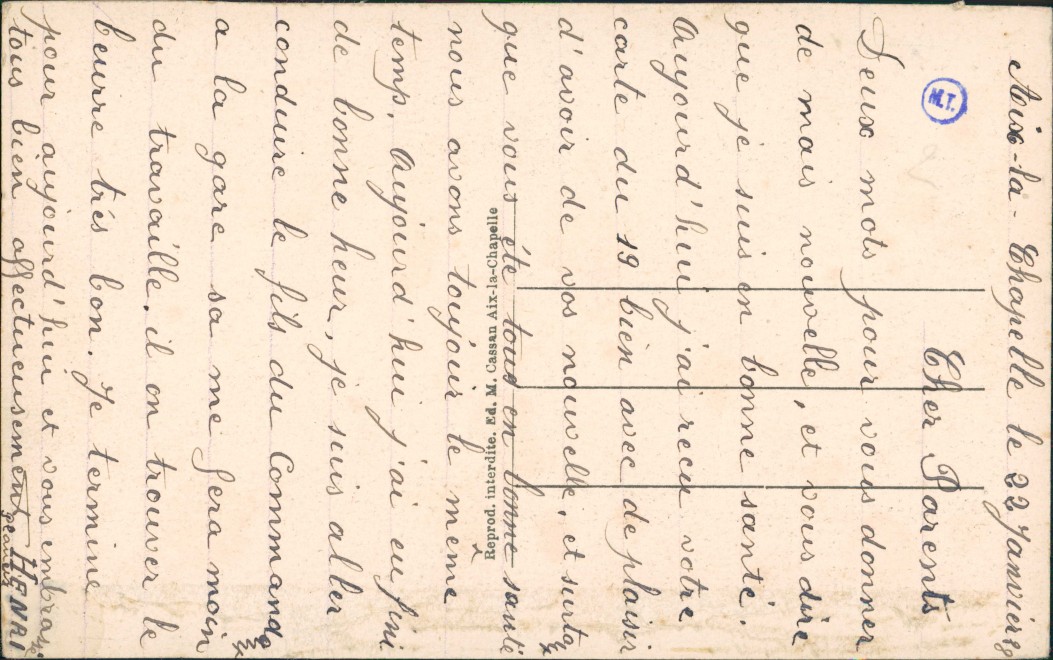 Aix-la-Chapelle le 22 Janvier
M.T.
Cher Parents
Deux mots pour vous donner
de mais nouvelle, et vous dire
que je suis en bonne santé.
Aujourd'hui j'ai recu votre
carte du 19 bien avec de plaisir
d'avoir de vos nouvelle, et surtout
que vous éte tous en bonne santé
Reprod. interdite. Ed. M. Cassan Aix-la-Chapelle
nous avons toujour le meme
temp. Aujourd'hui j'ai eu fini
de bonne heur, je suis aller
conduire le fils du Commandant
a la gare sa me fera moin
du travaille. il on trouver le
beurre trés bon. Je termine
pour aujourd'hui et vous embrasse
tous bien affectueusement HENRI